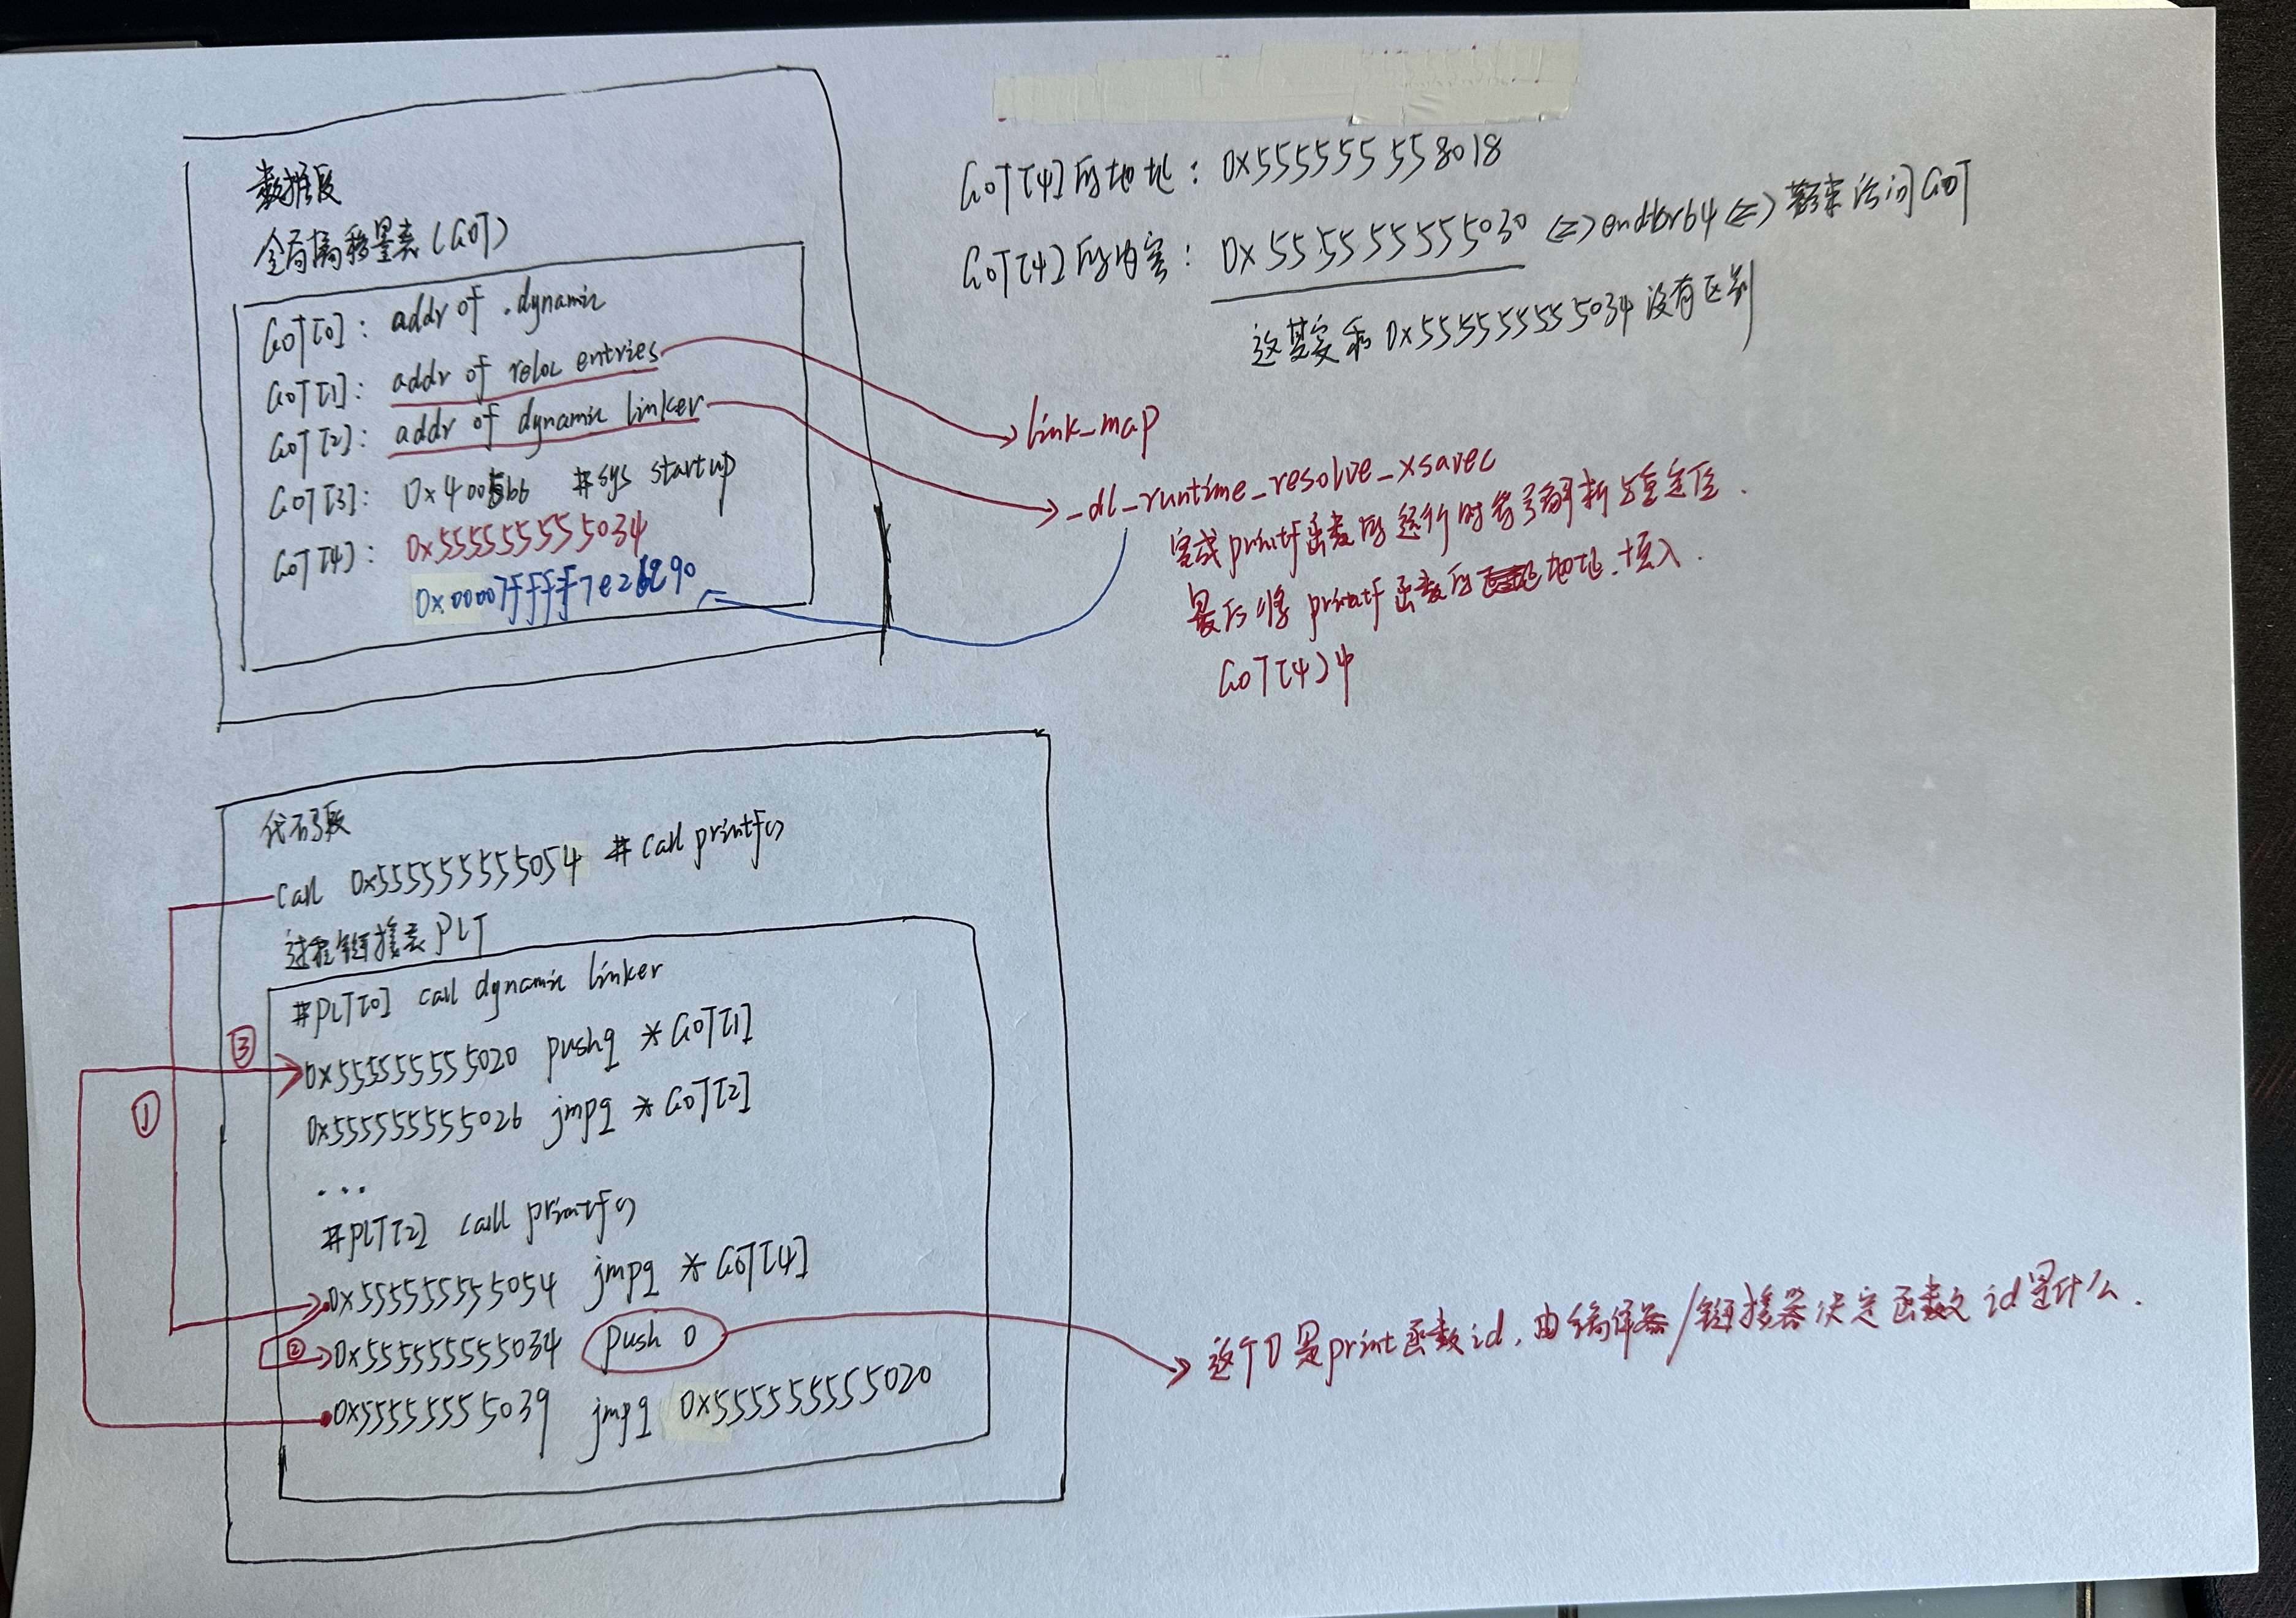 数据段
全局偏移量表(GOT)
GOT[0]: addr of .dynamic
GOT[1]: addr of reloc entries
GOT[2]: addr of dynamic linker
GOT[3]: 0x4005b6 #sys startup
GOT[4]: 0x555555555034
0x00007ffff7e26c90
GOT[4]的地址: 0x555555558018
GOT[4]的内容: 0x555555555030 <=> endbr64 <=> 访问GOT
这其实和0x555555555034没有区别
link_map
_dl_runtime_resolve_xsavec
完成printf函数的运行时符号解析与重定位.
最后将printf函数的地址填入.
GOT[4]中
代码段
call 0x555555555054 # call printf()
过程链接表PLT
#PLT[0] call dynamic linker
③
0x555555555020 pushq *GOT[1]
①
0x555555555026 jmpq *GOT[2]
...
#PLT[2] call printf()
0x555555555054 jmpq *GOT[4]
② 0x555555555034 push 0
这个0是print函数id, 由编译器/链接器决定函数id是什么.
0x555555555039 jmpq 0x555555555020